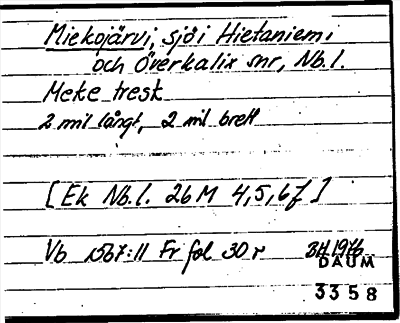 Miekojärvi, sjö i Hietaniemi
och Överkalix snr, Nb.l.
Meke tresk
2 mil långt, 2 mil brett
[Ek Nb.l. 26 M 4,5,6f]
Vb 1567:11 Fr fol 30 r BH 1976
DAUM
3358